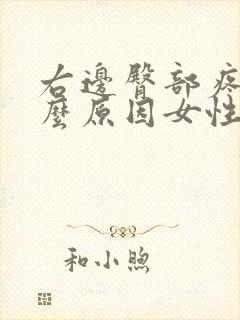 右邊臀部疼
麼原因女性
和小煦